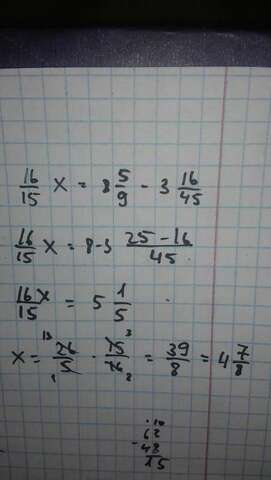 16/15 x = 8 5/9 - 3 16/45
16/15 x = 8-3 25-16/45
16x/15 = 5 1/5
x = 26/5 · 15/16 = 39/8 = 4 7/8